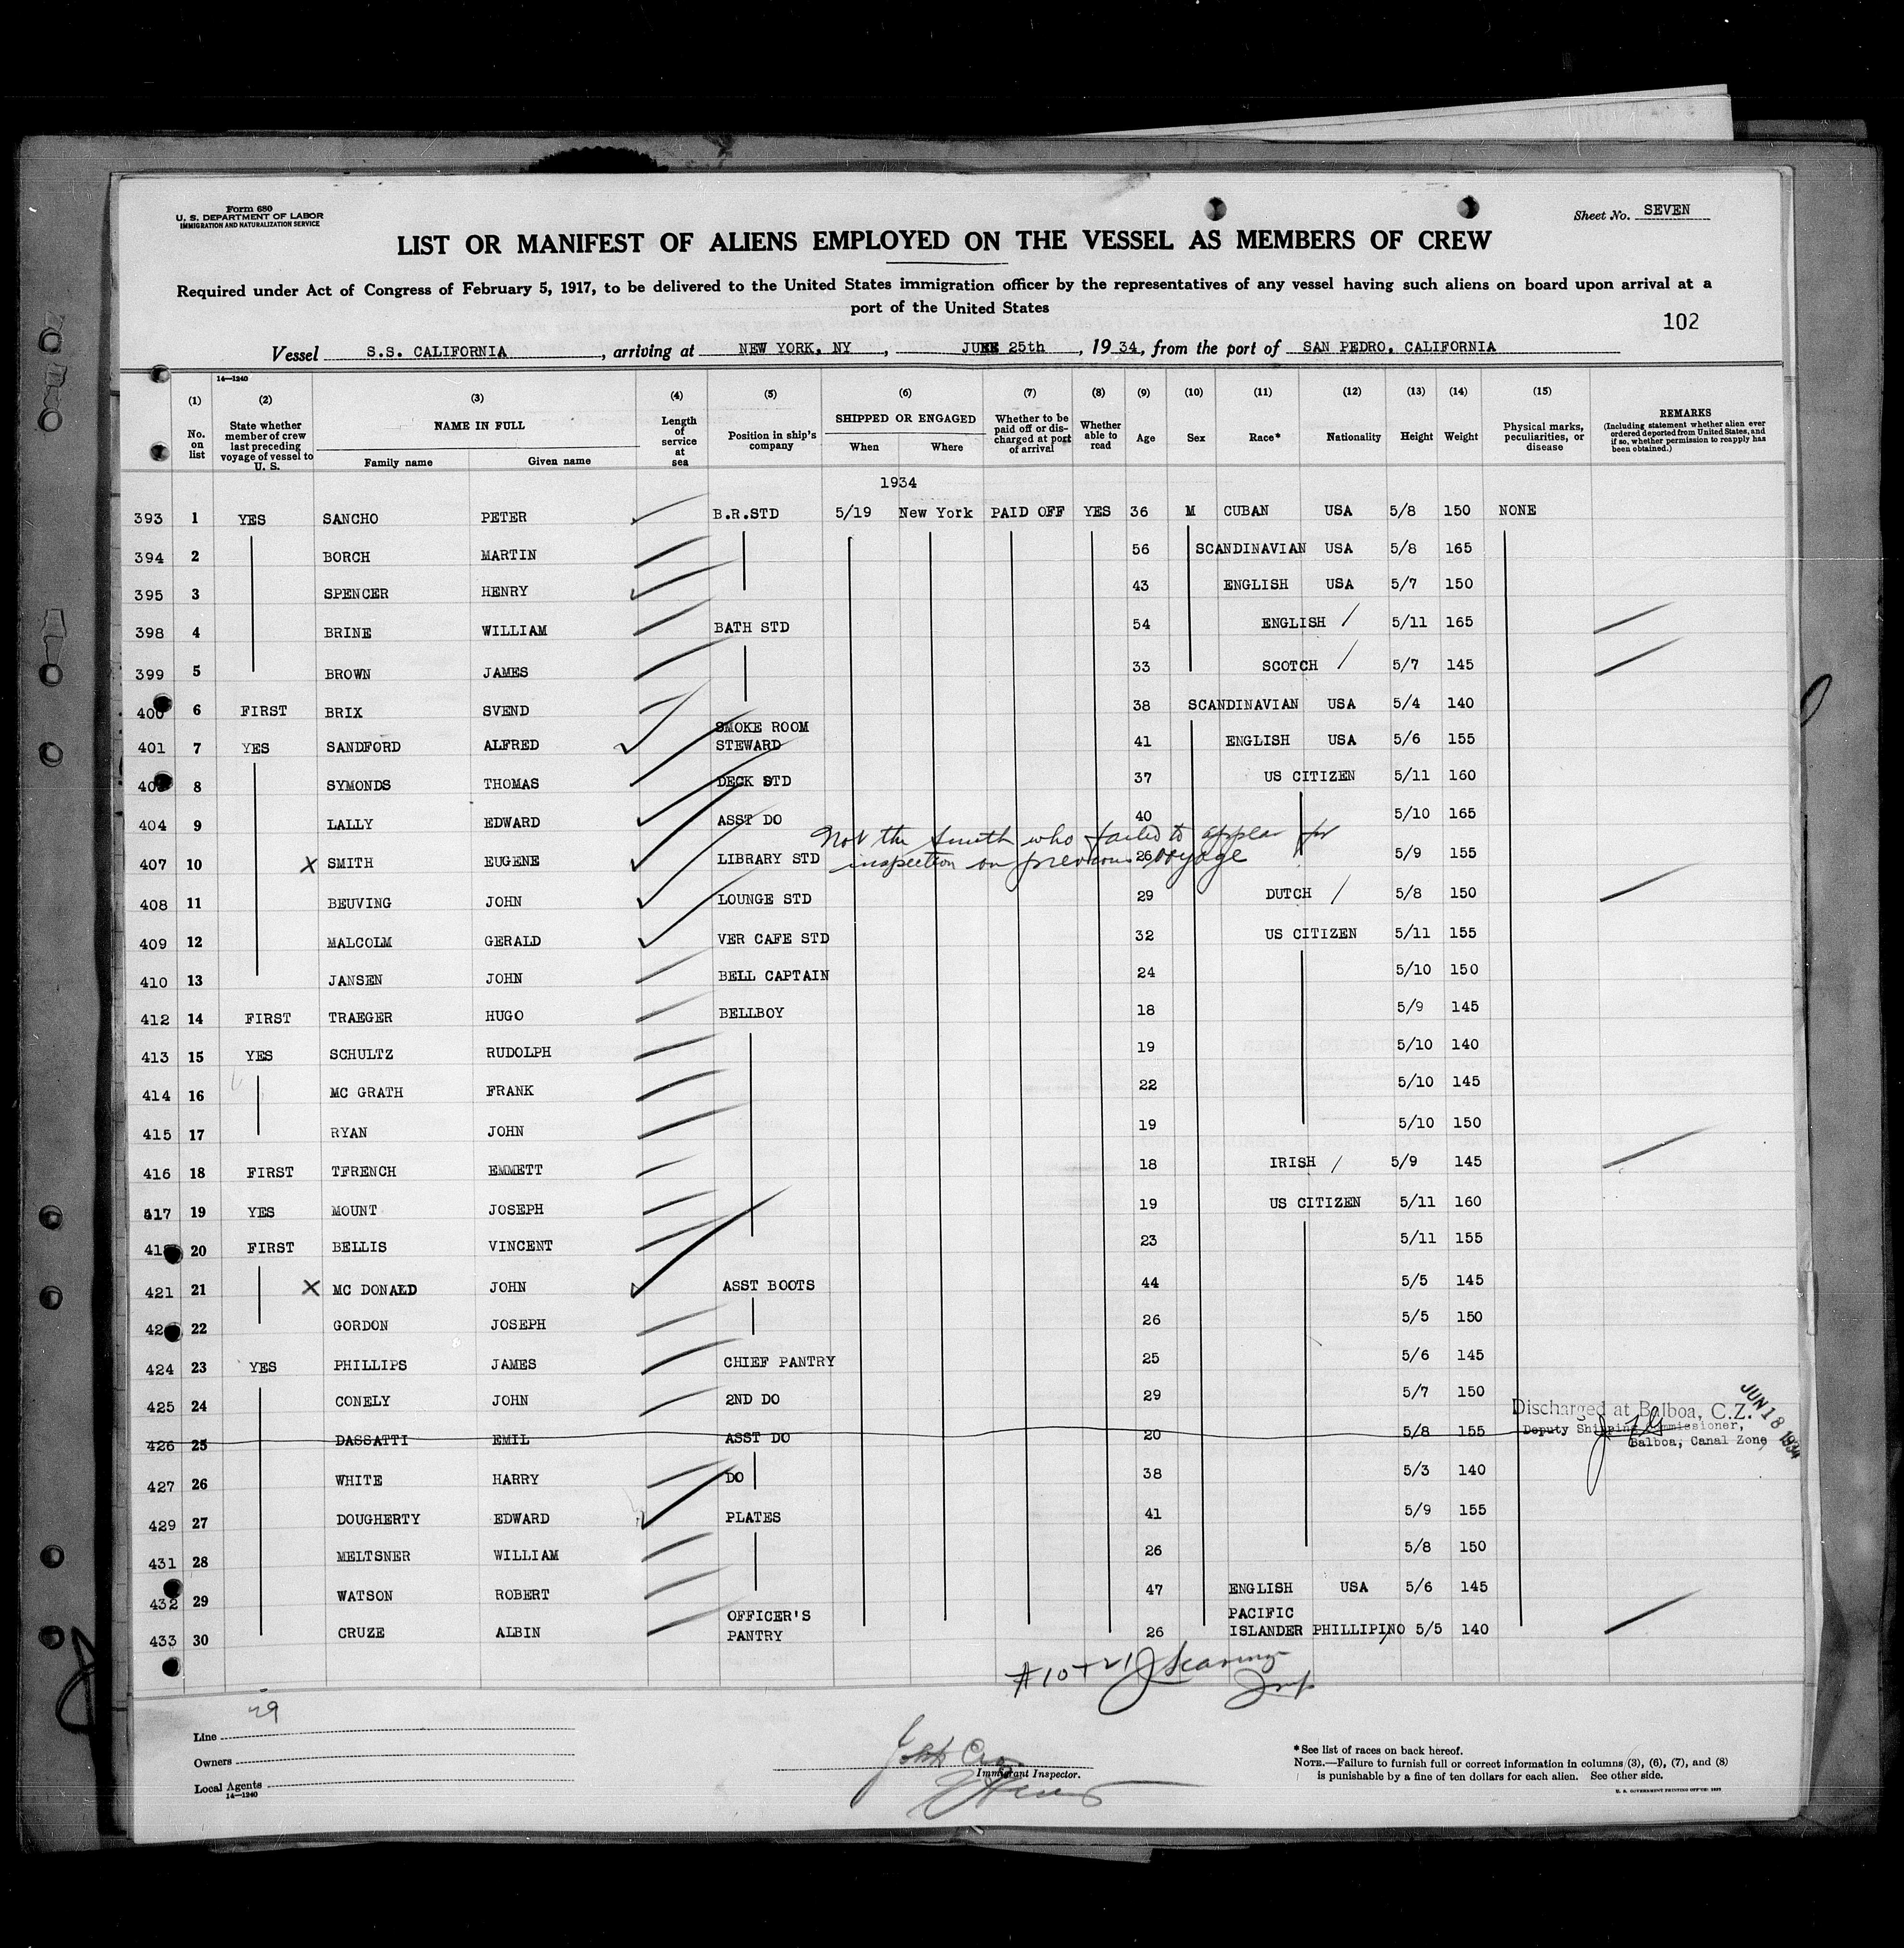 Form 680
U. S. DEPARTMENT OF LABOR
IMMIGRATION AND NATURALIZATION SERVICE
Sheet No. SEVEN
LIST OR MANIFEST OF ALIENS EMPLOYED ON THE VESSEL AS MEMBERS OF CREW
Required under Act of Congress of February 5, 1917, to be delivered to the United States immigration officer by the representatives of any vessel having such aliens on board upon arrival at a
port of the United States
102
Vessel S.S. CALIFORNIA, arriving at NEW YORK, NY, JUNE 25th, 1934, from the port of SAN PEDRO, CALIFORNIA
14—1240
(1) (2) (3) (4) (5) (6) (7) (8) (9) (10) (11) (12) (13) (14) (15)
No. on list
State whether member of crew last preceding voyage of vessel to U. S.
NAME IN FULL
Family name Given name
Length of service at sea
Position in ship's company
SHIPPED OR ENGAGED
When Where
Whether to be paid off or discharged at port of arrival
Whether able to read
Age Sex Race* Nationality Height Weight
Physical marks, peculiarities, or disease
REMARKS
(Including statement whether alien ever ordered deported from United States, and if so, whether permission to reapply has been obtained.)
1934
393 1 YES SANCHO PETER B.R.STD 5/19 New York PAID OFF YES 36 M CUBAN USA 5/8 150 NONE
394 2 BORCH MARTIN 56 SCANDINAVIAN USA 5/8 165
395 3 SPENCER HENRY 43 ENGLISH USA 5/7 150
398 4 BRINE WILLIAM BATH STD 54 ENGLISH / 5/11 165
399 5 BROWN JAMES 33 SCOTCH / 5/7 145
400 6 FIRST BRIX SVEND 38 SCANDINAVIAN USA 5/4 140
401 7 YES SANDFORD ALFRED SMOKE ROOM STEWARD 41 ENGLISH USA 5/6 155
8 SYMONDS THOMAS DECK STD 37 US CITIZEN 5/11 160
404 9 LALLY EDWARD ASST DO 40 5/10 165
Not the Smith who failed to appear for
inspection on previous voyage
407 10 X SMITH EUGENE LIBRARY STD 26 5/9 155
408 11 BEUVING JOHN LOUNGE STD 29 DUTCH / 5/8 150
409 12 MALCOLM GERALD VER CAFE STD 32 US CITIZEN 5/11 155
410 13 JANSEN JOHN BELL CAPTAIN 24 5/10 150
412 14 FIRST TRAEGER HUGO BELLBOY 18 5/9 145
413 15 YES SCHULTZ RUDOLPH 19 5/10 140
414 16 MC GRATH FRANK 22 5/10 145
415 17 RYAN JOHN 19 5/10 150
416 18 FIRST TFRENCH EMMETT 18 IRISH / 5/9 145
417 19 YES MOUNT JOSEPH 19 US CITIZEN 5/11 160
20 FIRST BELLIS VINCENT 23 5/11 155
421 21 X MC DONALD JOHN ASST BOOTS 44 5/5 145
22 GORDON JOSEPH 26 5/5 150
424 23 YES PHILLIPS JAMES CHIEF PANTRY 25 5/6 145
425 24 CONELY JOHN 2ND DO 29 5/7 150
426 25 DASSATTI EMIL ASST DO 20 5/8 155
Discharged at Balboa, C.Z. JUN 18 1934
Deputy Shipping Commissioner,
Balboa, Canal Zone
427 26 WHITE HARRY DO 38 5/3 140
429 27 DOUGHERTY EDWARD PLATES 41 5/9 155
431 28 MELTSNER WILLIAM 26 5/8 150
432 29 WATSON ROBERT 47 ENGLISH USA 5/6 145
433 30 CRUZE ALBIN OFFICER'S PANTRY 26 PACIFIC ISLANDER PHILLIPINO 5/5 140
#10 + 21
29
Line
Owners
Local Agents
14—1240
Immigrant Inspector.
*See list of races on back hereof.
NOTE.—Failure to furnish full or correct information in columns (3), (6), (7), and (8)
is punishable by a fine of ten dollars for each alien. See other side.
U. S. GOVERNMENT PRINTING OFFICE